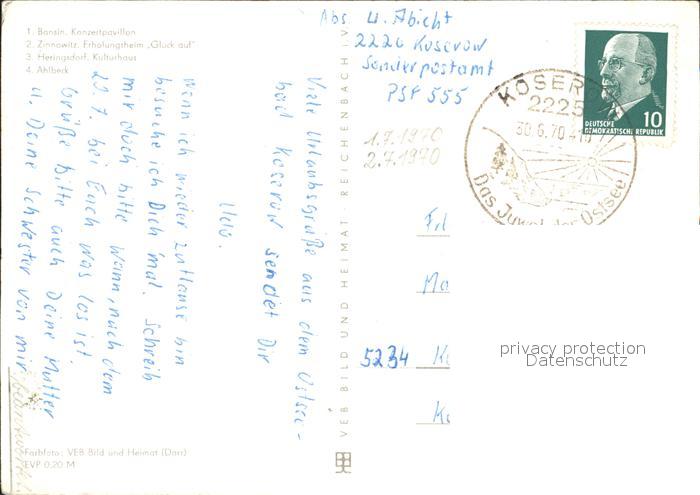 1. Bansin. Konzertpavillon
2. Zinnowitz. Erholungsheim „Glück auf"
3. Heringsdorf. Kulturhaus
4. Ahlbeck
Viele Urlaubsgrüße aus dem Ostsee-
bad Koserow sendet Dir
Udo.
Wenn ich wieder zuHause bin
besuche ich Dich mal. Schreib
mir doch bitte wann, nach dem
20.7. bei Euch was los ist.
Grüße bitte auch Deine Mutter
u. Deine Schwester von mir.
beantwortet
Farbfoto: VEB Bild und Heimat (Darr)
EVP 0,20 M
VEB BILD UND HEIMAT REICHENBACH I V
Abs. U. Abicht
2226 Koserow
Sonderpostamt
PSF 555
1.7.1970
2.7.1970
KOSERO
2225
30.6.70
Das Juwel der Ostsee
10
DEUTSCHE
DEMOKRATISCHE REPUBLIK
Frl
Ma
5234 K
K
privacy protection
Datenschutz